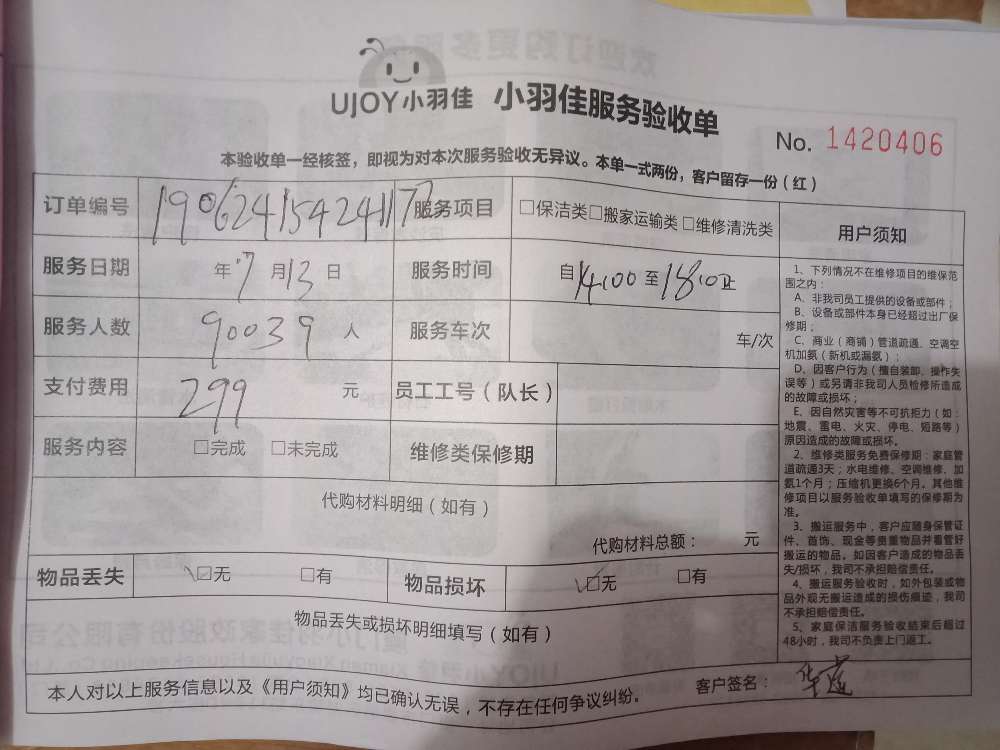 UJOY小羽佳 小羽佳服务验收单
No. 1420406
本验收单一经核签，即视为对本次服务验收无异议。本单一式两份，客户留存一份（红）
订单编号 19062415424117 服务项目 □保洁类□搬家运输类□维修清洗类
服务日期 年7月13日 服务时间 自14:00至18:00止
服务人数 90039 人 服务车次 车/次
支付费用 299 元 员工工号（队长）
服务内容 □完成 □未完成 维修类保修期
代购材料明细（如有）
代购材料总额： 元
物品丢失 ☑无 □有 物品损坏 ☑无 □有
物品丢失或损坏明细填写（如有）
本人对以上服务信息以及《用户须知》均已确认无误，不存在任何争议纠纷。 客户签名：
用户须知
1、下列情况不在维修项目的维保范
围之内：
A、非我司员工提供的设备或部件；
B、设备或部件本身已经超过出厂保
修期；
C、商业（商铺）管道疏通、空调空
机加氨（新机或漏氨）；
D、因客户行为（擅自装卸、操作失
误等）或另请非我司人员检修所造成
的故障或损坏；
E、因自然灾害等不可抗拒力（如：
地震、雷电、火灾、停电、短路等）
原因造成的故障或损坏。
2、维修类服务免费保修期：家庭管
道疏通3天；水电维修、空调维修、加
氨1个月；压缩机更换6个月。其他维
修项目以服务验收单填写的保修期为
准。
3、搬运服务中，客户应随身保管证
件、首饰、现金等贵重物品并看管好
搬运的物品。如因客户造成的物品丢
失/损坏，我司不承担赔偿责任。
4、搬运服务验收时，如外包装或物
品外观无搬运造成的损伤痕迹，我司
不承担赔偿责任。
5、家庭保洁服务验收结束后超过
48小时，我司不负责上门返工。